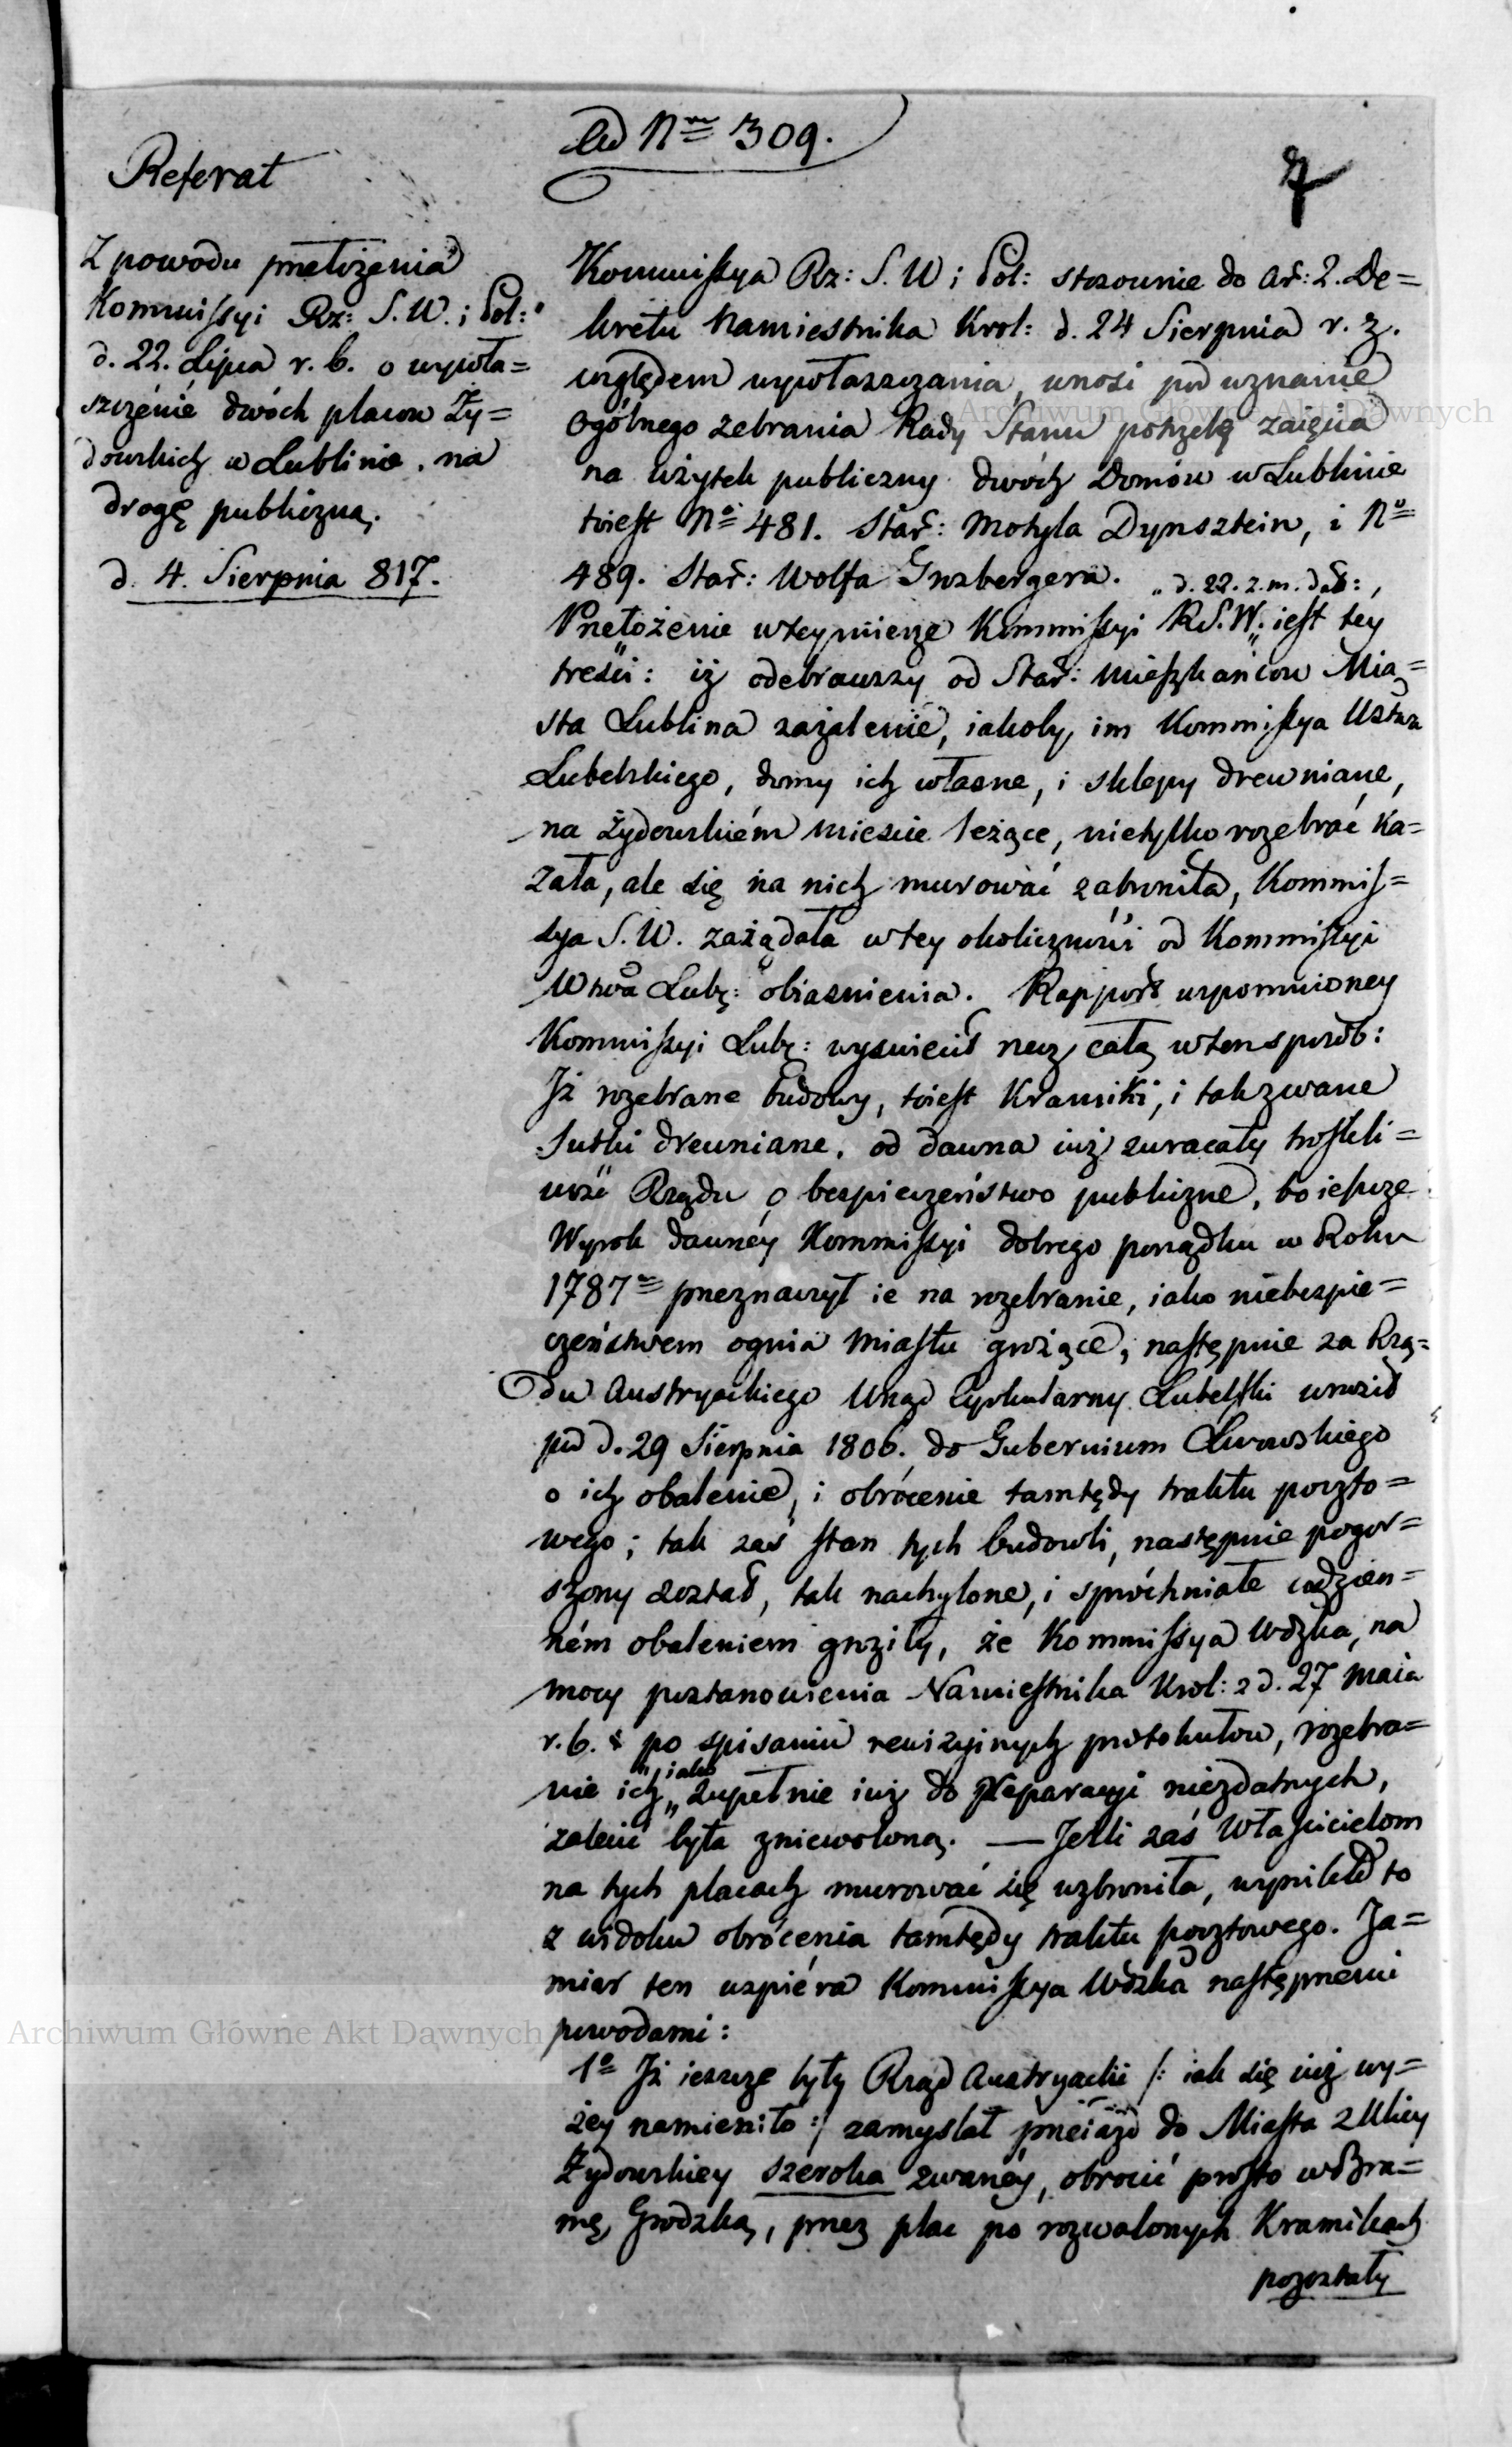 Ad N<sup>m</sup> 309.
7
Referat
Z powodu przełożenia
Kommissyi Rz: S. W. i Pol:
d. 22. Lipca r. b. o wywła=
szczenie dwóch placow Ży=
dowskich w Lublinie, na
drogę publiczną.
d. 4. Sierpnia 817.
Kommissya Rz: S. W i Pol: stosownie do Art: 2. De=
kretu Namiestnika Krol: d. 24 Sierpnia r. z.
względem wywłaszczania, wnosi pod uznanie
Ogólnego Zebrania Rady Stanu potrzebę zaięcia
na użytek publiczny dwóch Domów w Lublinie
toiest N<sup>o</sup> 481. Star: Motyla Dynsztein, i N<sup>o</sup>
489. Star: Wolfa Ginzbergera. „ d. 22. z. m. dat: „
Przełożenie w tey mierze Kommissyi R S. W. „ iest tey
treści: iż odebrawszy od Star: Mieszkańcow Mia=
sta Lublina zażalenie, iakoby im Kommissya Wztwa
Lubelskiego, domy ich własne, i sklepy drewniane,
na Żydowskiém mieście leżące, nietylko rozebrać ka=
zała, ale się na nich murować zabroniła, Kommis=
sya S. W. zażądała w tey okoliczności od Kommissyi
Wtwa Lubę: obiasnienia. Rapport wspomnioney
Kommissyi Lubę: wyswiecił rzecz całą w ten sposób:
Iż rozebrane budowy, toiest Kramiki, i tak zwane
Jutki drewniane, od dawna iuż zwracały troskli=
wość Rządu o bespieczeństwo publiczne, bo ieszcze
Wyrok dawnéy Kommissyi dobrego porządku w Roku
1787<sup>m</sup> przeznaczył ie na rozebranie, iako niebezpie=
czeństwem ognia Miastu grożące, następnie za Rzą=
du Austryackiego Urząd Cyrkularny Lubelski wnosił
pod d. 29 Sierpnia 1806. do Gubernium Lwowskiego
o ich obalenie, i obrócenie tamtędy traktu poczto=
wego; tak zaś stan tych budowli, następnie pogor=
szony został, tak nachylone, i spróchniałe codzien=
ném obaleniem groziły, że Kommissya Wdzka, na
mocy postanowienia Namiestnika Krol: z d. 27 Maia
r. b. po spisaniu rewizyinych protokułow, rozebra=
nie ich „ iako „ zupełnie iuż do Reparacyi niezdatnych,
zalecić była zniewolona. — Jeśli zaś Właścicielom
na tych placach murować się wzbroniła, wynikło to
z widoku obrócenia tamtędy traktu pocztowego. Za=
miar ten wspiéra Kommissya Wdzka następnemi
powodami:
1<sup>o</sup> Iż ieszcze były Rząd Austryacki /: iak się iuż wy=
żey namieniło :/ zamyslał przeiazd do Miasta z Ulicy
Żydowskiey szeroka zwanéy, obrocić prosto w Bra=
mę Grodzką, przez plac po rozwalonych Kramikach
pozostały
Archiwum Główne Akt Dawnych
Archiwum Główne Akt Dawnych